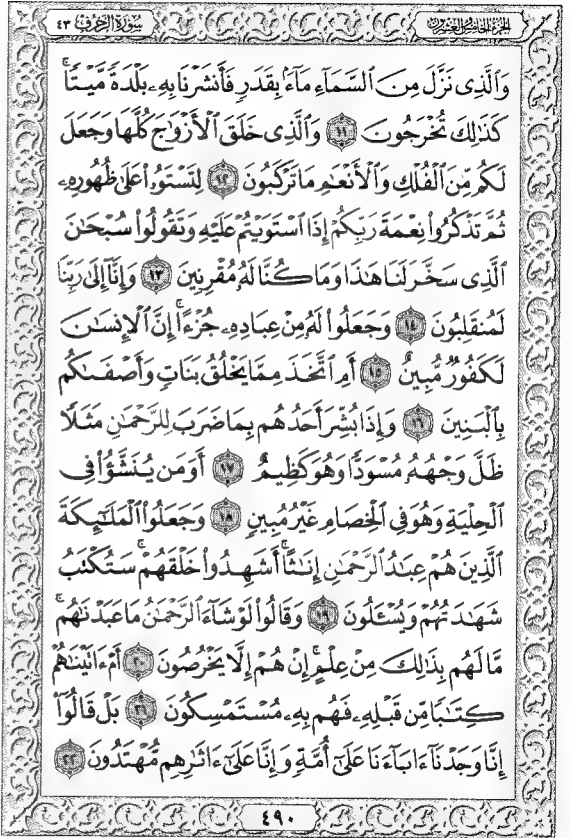 الجزء الخامس والعشرون
سورة الزخرف ٤٣
وَٱلَّذِى نَزَّلَ مِنَ ٱلسَّمَآءِ مَآءَۢ بِقَدَرٍ فَأَنشَرْنَا بِهِۦ بَلْدَةً مَّيْتًا ۚ
كَذَٰلِكَ تُخْرَجُونَ ١١ وَٱلَّذِى خَلَقَ ٱلْأَزْوَٰجَ كُلَّهَا وَجَعَلَ
لَكُم مِّنَ ٱلْفُلْكِ وَٱلْأَنْعَٰمِ مَا تَرْكَبُونَ ١٢ لِتَسْتَوُۥا۟ عَلَىٰ ظُهُورِهِۦ
ثُمَّ تَذْكُرُوا۟ نِعْمَةَ رَبِّكُمْ إِذَا ٱسْتَوَيْتُمْ عَلَيْهِ وَتَقُولُوا۟ سُبْحَٰنَ
ٱلَّذِى سَخَّرَ لَنَا هَٰذَا وَمَا كُنَّا لَهُۥ مُقْرِنِينَ ١٣ وَإِنَّآ إِلَىٰ رَبِّنَا
لَمُنقَلِبُونَ ١٤ وَجَعَلُوا۟ لَهُۥ مِنْ عِبَادِهِۦ جُزْءًا ۚ إِنَّ ٱلْإِنسَٰنَ
لَكَفُورٌ مُّبِينٌ ١٥ أَمِ ٱتَّخَذَ مِمَّا يَخْلُقُ بَنَاتٍ وَأَصْفَىٰكُم
بِٱلْبَنِينَ ١٦ وَإِذَا بُشِّرَ أَحَدُهُم بِمَا ضَرَبَ لِلرَّحْمَٰنِ مَثَلًا
ظَلَّ وَجْهُهُۥ مُسْوَدًّا وَهُوَ كَظِيمٌ ١٧ أَوَمَن يُنَشَّؤُا۟ فِى
ٱلْحِلْيَةِ وَهُوَ فِى ٱلْخِصَامِ غَيْرُ مُبِينٍ ١٨ وَجَعَلُوا۟ ٱلْمَلَٰٓئِكَةَ
ٱلَّذِينَ هُمْ عِبَٰدُ ٱلرَّحْمَٰنِ إِنَٰثًا ۚ أَشَهِدُوا۟ خَلْقَهُمْ ۚ سَتُكْتَبُ
شَهَٰدَتُهُمْ وَيُسْـَٔلُونَ ١٩ وَقَالُوا۟ لَوْ شَآءَ ٱلرَّحْمَٰنُ مَا عَبَدْنَٰهُم ۗ
مَّا لَهُم بِذَٰلِكَ مِنْ عِلْمٍ ۖ إِنْ هُمْ إِلَّا يَخْرُصُونَ ٢٠ أَمْ ءَاتَيْنَٰهُمْ
كِتَٰبًا مِّن قَبْلِهِۦ فَهُم بِهِۦ مُسْتَمْسِكُونَ ٢١ بَلْ قَالُوٓا۟
إِنَّا وَجَدْنَآ ءَابَآءَنَا عَلَىٰٓ أُمَّةٍ وَإِنَّا عَلَىٰٓ ءَاثَٰرِهِم مُّهْتَدُونَ ٢٢
٤٩٠